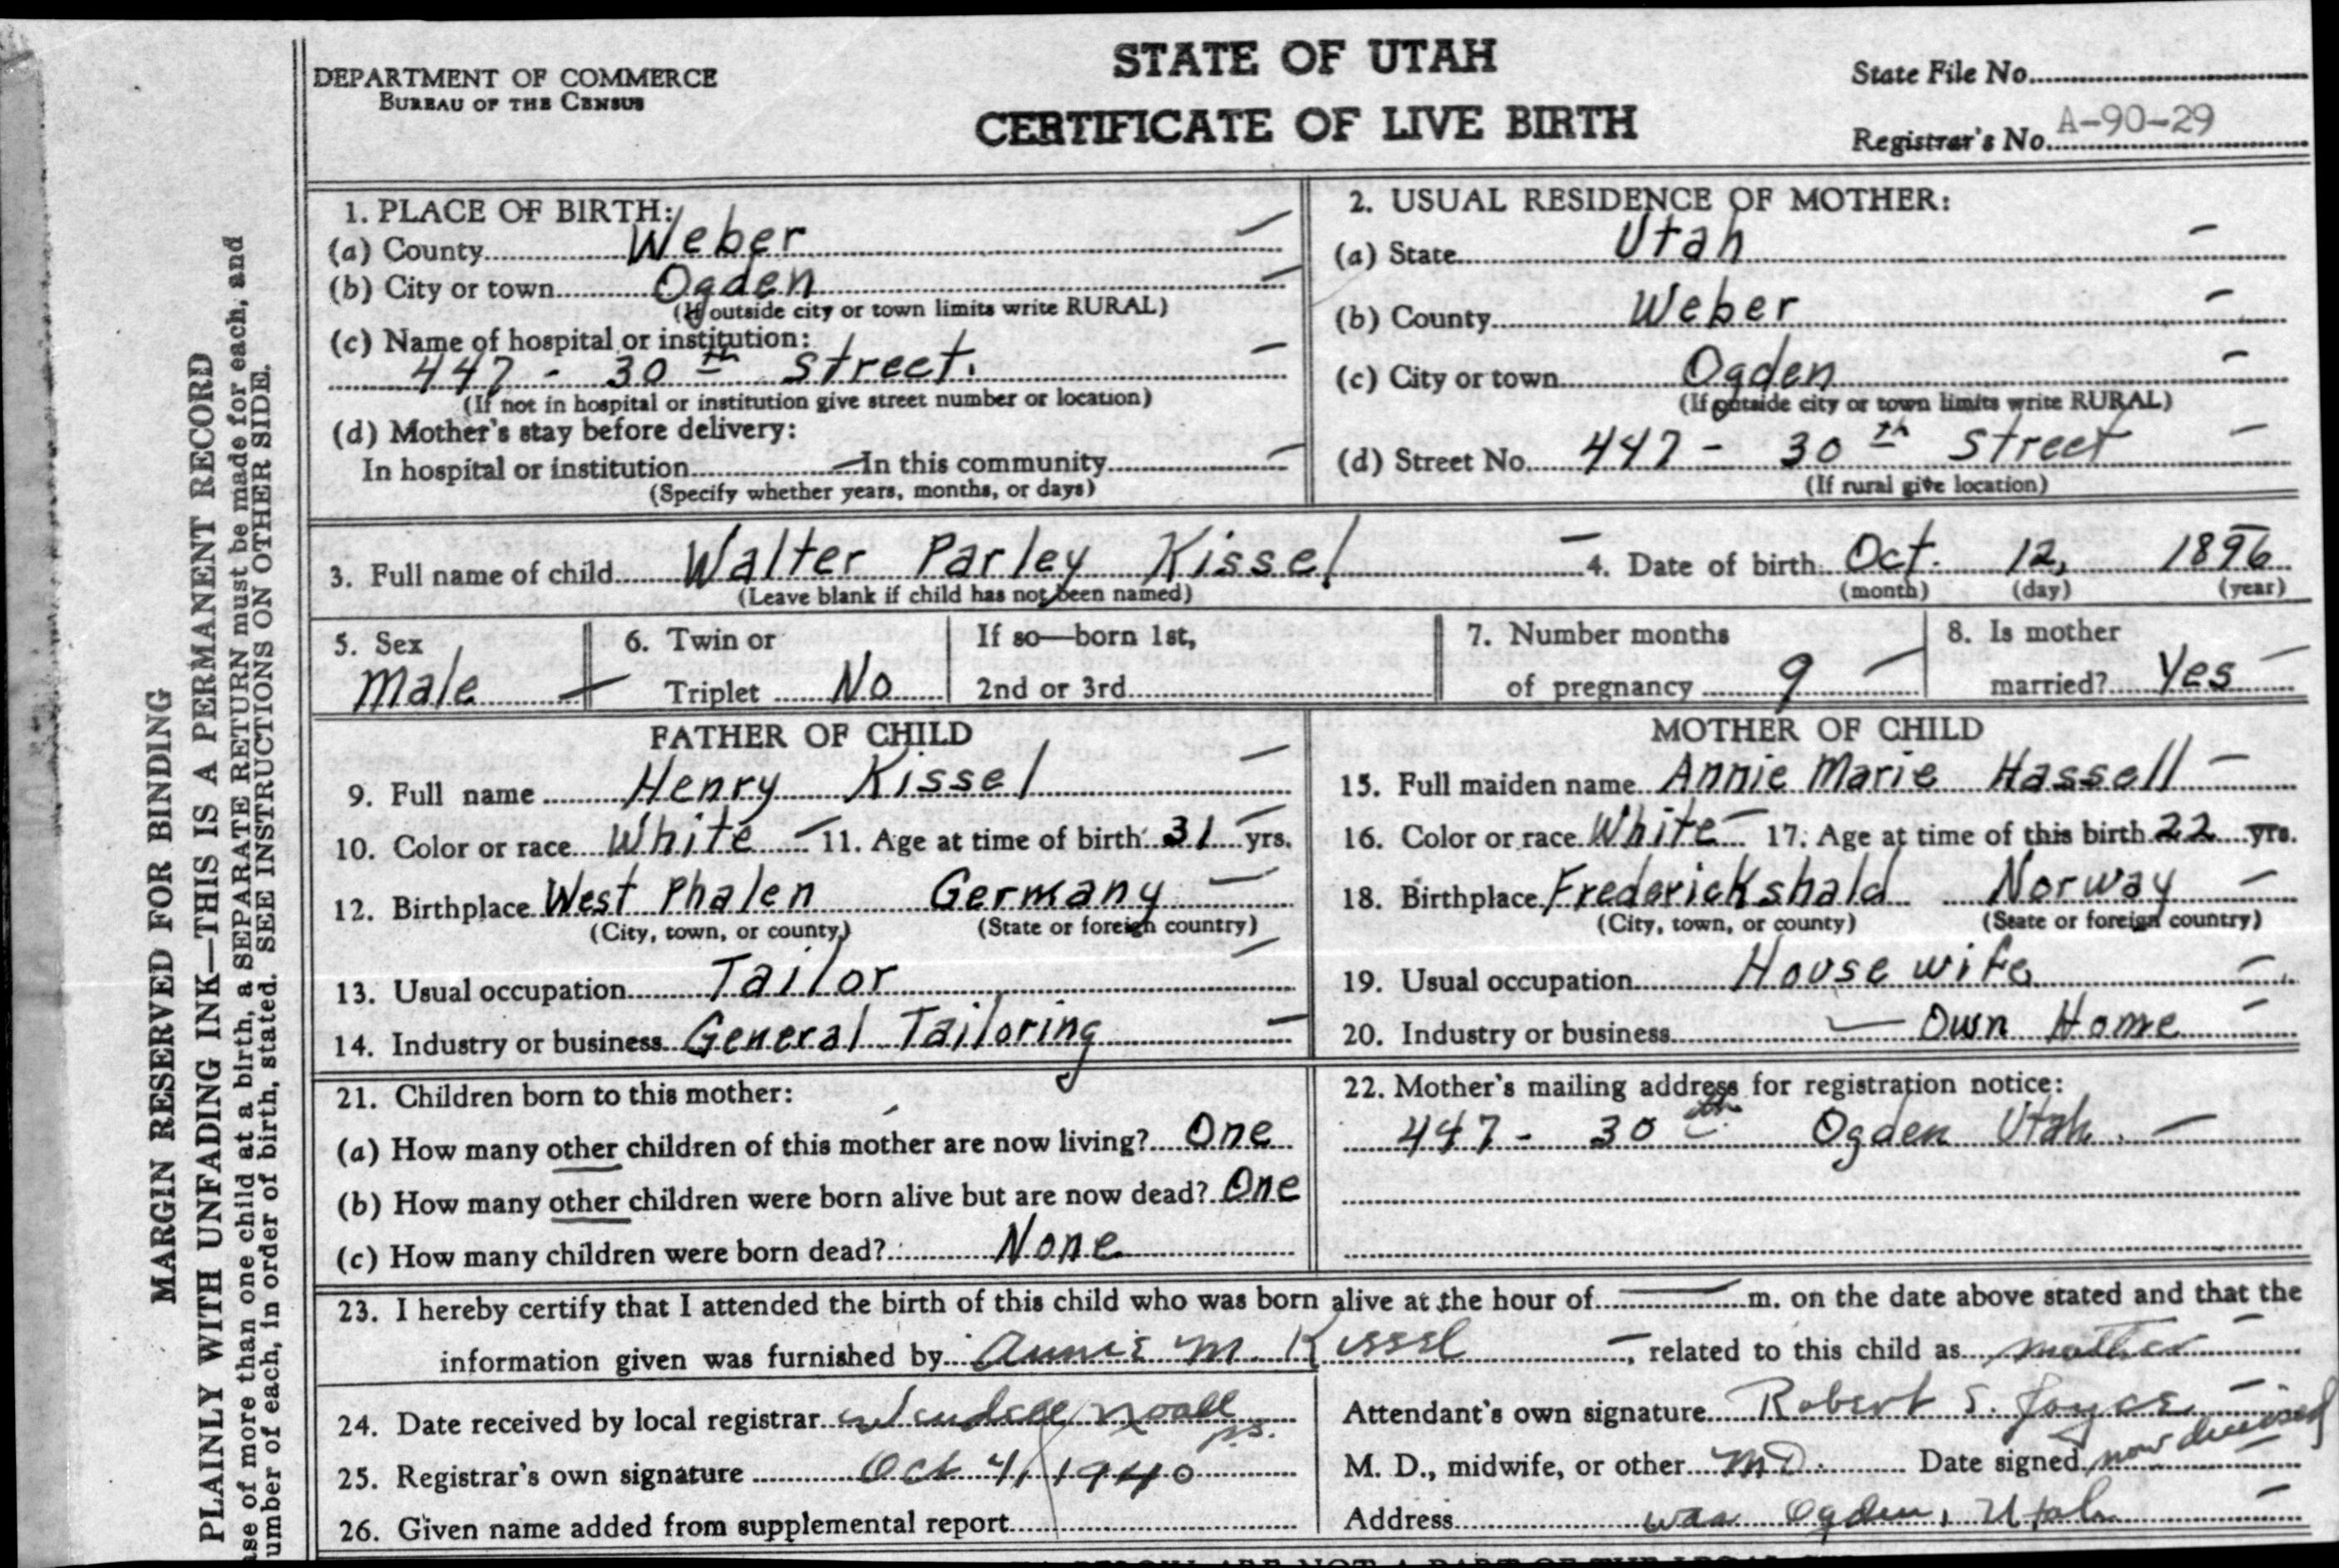 DEPARTMENT OF COMMERCE
BUREAU OF THE CENSUS
STATE OF UTAH
CERTIFICATE OF LIVE BIRTH
State File No.
Registrar's No. A-90-29
MARGIN RESERVED FOR BINDING
PLAINLY WITH UNFADING INK—THIS IS A PERMANENT RECORD
ase of more than one child at a birth, a SEPARATE RETURN must be made for each, and
umber of each, in order of birth, stated. SEE INSTRUCTIONS ON OTHER SIDE.
1. PLACE OF BIRTH:
(a) County Weber
(b) City or town Ogden
(If outside city or town limits write RURAL)
(c) Name of hospital or institution:
447 - 30th Street.
(If not in hospital or institution give street number or location)
(d) Mother's stay before delivery:
In hospital or institution — In this community —
(Specify whether years, months, or days)
2. USUAL RESIDENCE OF MOTHER:
(a) State Utah
(b) County Weber
(c) City or town Ogden
(If outside city or town limits write RURAL)
(d) Street No. 447 - 30th Street
(If rural give location)
3. Full name of child Walter Parley Kissel 4. Date of birth Oct. 12, 1896
(Leave blank if child has not been named) (month) (day) (year)
5. Sex
Male
6. Twin or
Triplet No
If so—born 1st,
2nd or 3rd
7. Number months
of pregnancy 9
8. Is mother
married? Yes
FATHER OF CHILD
9. Full name Henry Kissel
10. Color or race White 11. Age at time of birth 31 yrs.
12. Birthplace West Phalen Germany
(City, town, or county) (State or foreign country)
13. Usual occupation Tailor
14. Industry or business General Tailoring
MOTHER OF CHILD
15. Full maiden name Annie Marie Hassell
16. Color or race White 17. Age at time of this birth 22 yrs.
18. Birthplace Frederickshald Norway
(City, town, or county) (State or foreign country)
19. Usual occupation House wife
20. Industry or business — Own Home
21. Children born to this mother:
(a) How many other children of this mother are now living? One
(b) How many other children were born alive but are now dead? One
(c) How many children were born dead? None
22. Mother's mailing address for registration notice:
447 - 30th Ogden Utah.
23. I hereby certify that I attended the birth of this child who was born alive at the hour of — m. on the date above stated and that the
information given was furnished by Annie M. Kissel, related to this child as mother
24. Date received by local registrar Wendell Noall
25. Registrar's own signature Oct 4, 1940
26. Given name added from supplemental report
Attendant's own signature Robert S. Joyce
M. D., midwife, or other M.D. Date signed now deceased
Address was Ogden, Utah